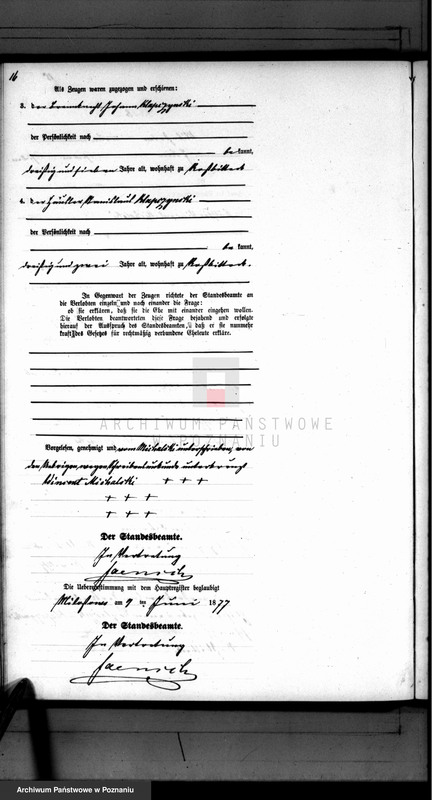 16
Als Zeugen waren zugezogen und erschienen:
3. der Johann Klapczynski
der Persönlichkeit nach
be kannt,
dreißig und sieben Jahre alt, wohnhaft zu
4. der Häusler Stanislaus Klapczynski
der Persönlichkeit nach
be kannt,
dreißig und zwei Jahre alt, wohnhaft zu
In Gegenwart der Zeugen richtete der Standesbeamte an
die Verlobten einzeln und nach einander die Frage:
ob sie erklären, daß sie die Ehe mit einander eingehen wollen.
Die Verlobten beantworteten diese Frage bejahend und erfolgte
hierauf der Ausspruch des Standesbeamten, daß er sie nunmehr
kraft des Gesetzes für rechtmäßig verbundene Eheleute erkläre.
ARCHIWUM PAŃSTWOWE
W POZNANIU
Vorgelesen, genehmigt und vom Michalski unterschrieben, von
den Uebrigen, wegen Schreibensunkunde unterkreuzt
Vincent Michalski + + +
+ + +
+ + +
Der Standesbeamte.
In Vertretung
Jaensch
Die Uebereinstimmung mit dem Hauptregister beglaubigt
Miloslaw am 9 ten Juni 1877
Der Standesbeamte.
In Vertretung
Jaensch
Archiwum Państwowe w Poznaniu